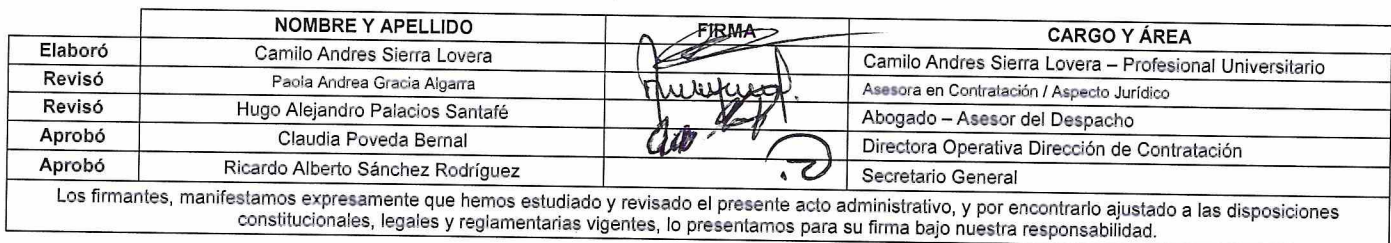 NOMBRE Y APELLIDO FIRMA CARGO Y ÁREA
Elaboró Camilo Andres Sierra Lovera Camilo Andres Sierra Lovera – Profesional Universitario
Revisó Paola Andrea Gracia Algarra Asesora en Contratación / Aspecto Jurídico
Revisó Hugo Alejandro Palacios Santafé Abogado – Asesor del Despacho
Aprobó Claudia Poveda Bernal Directora Operativa Dirección de Contratación
Aprobó Ricardo Alberto Sánchez Rodríguez Secretario General
Los firmantes, manifestamos expresamente que hemos estudiado y revisado el presente acto administrativo, y por encontrarlo ajustado a las disposiciones
constitucionales, legales y reglamentarias vigentes, lo presentamos para su firma bajo nuestra responsabilidad.